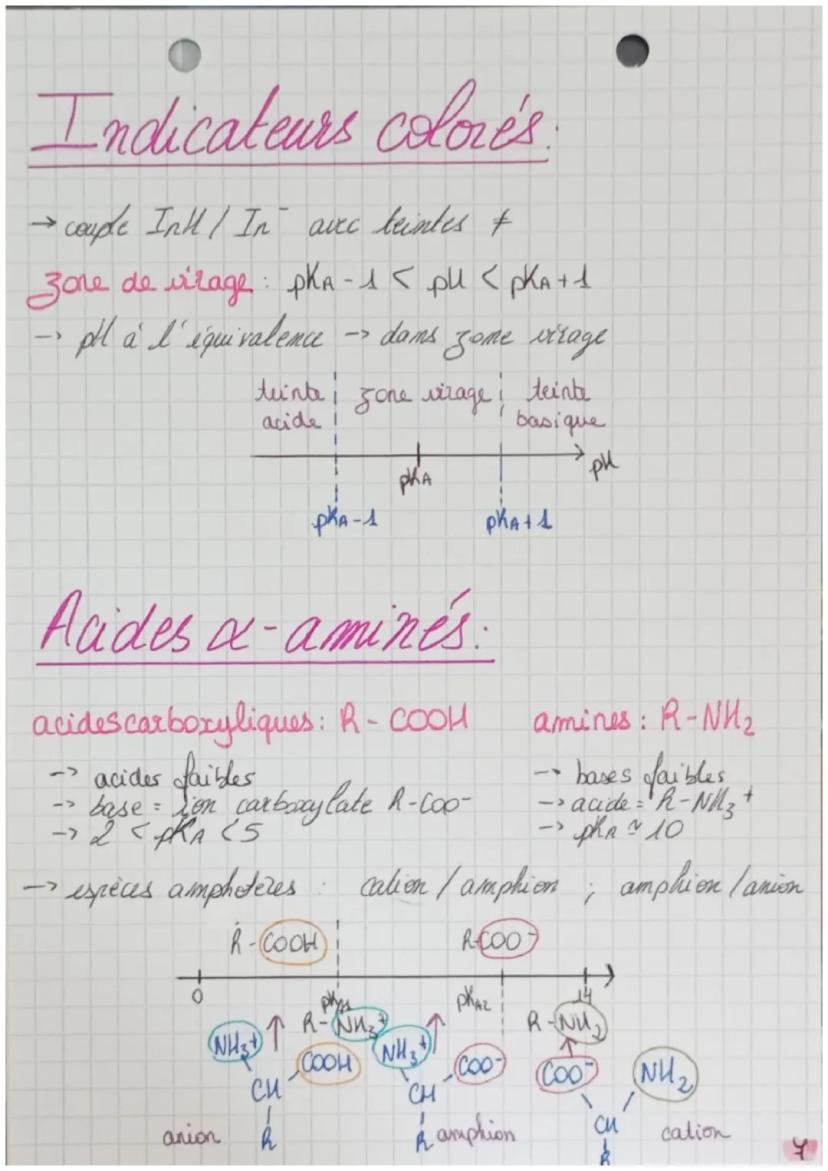 Indicateurs colorés :
→ couple InH / In⁻ avec teintes ≠
zone de virage : pKA - 1 < pH < pKA + 1
→ pH à l'équivalence → dans zone virage
teinte acide zone virage teinte basique
pKA pH
pKA - 1 pKA + 1
Acides α-aminés :
acides carboxyliques : R - COOH amines : R-NH₂
→ acides faibles → bases faibles
→ base = ion carboxylate R-COO⁻ → acide = R-NH₃⁺
→ 2 < pKA < 5 → pKA ≃ 10
→ espèces amphotères : cation / amphion ; amphion / anion
R - COOH R-COO⁻
0 pKA1 pKA2 14
R - NH₃⁺ R - NH₂
NH₃⁺ COOH NH₃⁺ COO⁻ COO⁻ NH₂
CH CH CH
anion R R amphion R cation
7